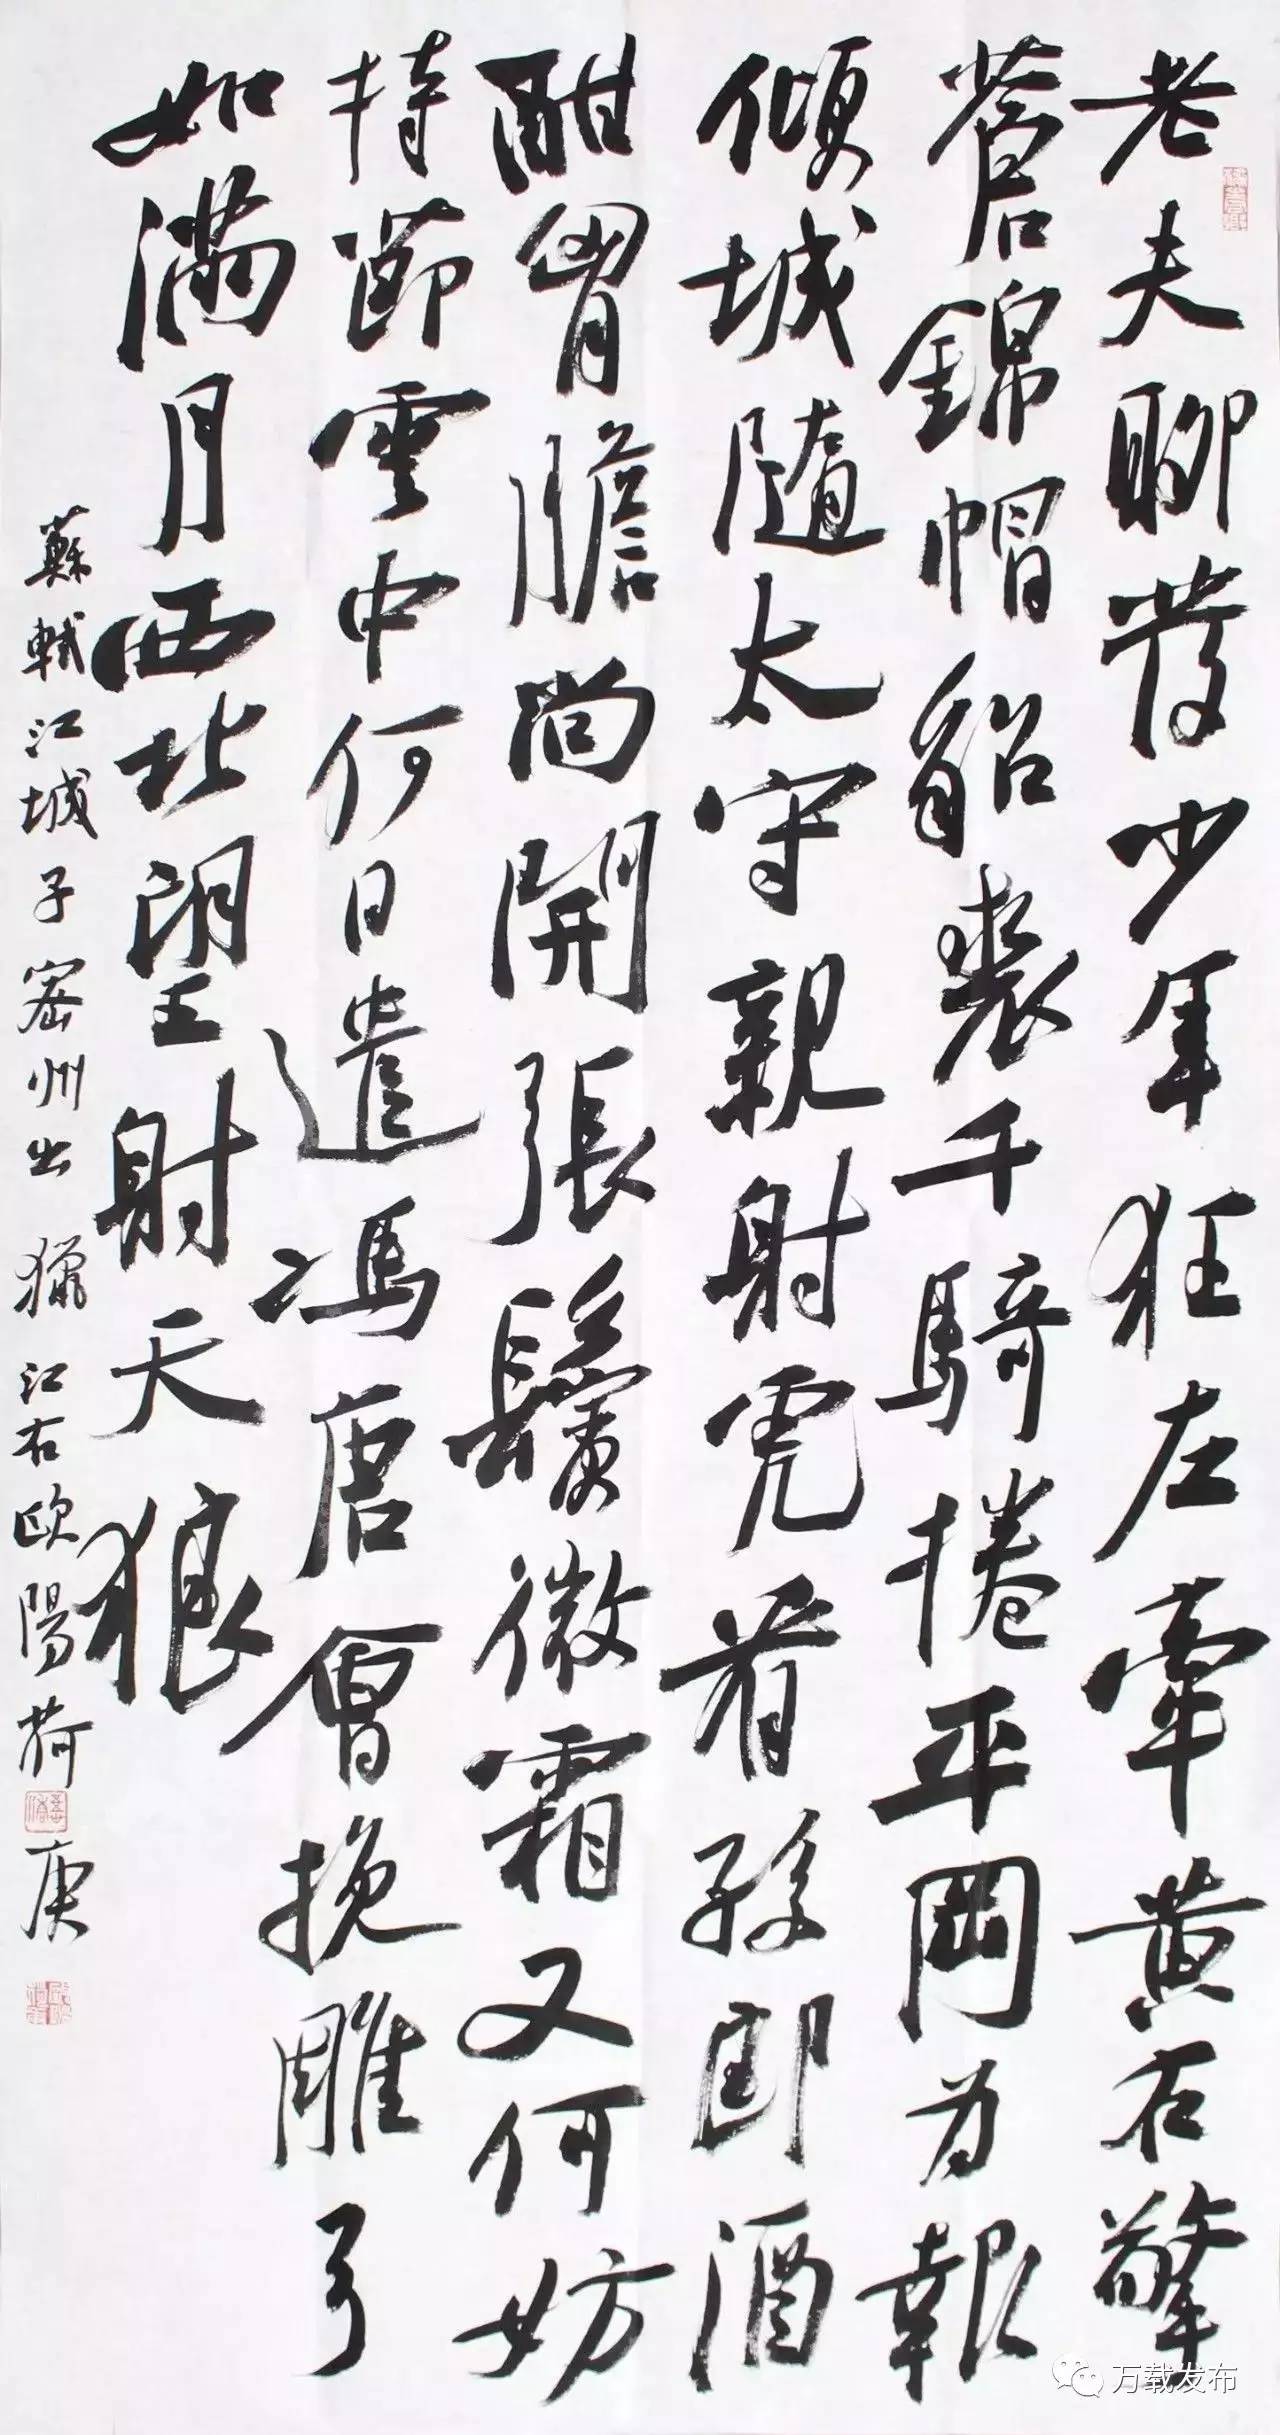 老夫聊發少年狂左牽黄右擎
蒼錦帽貂裘千騎捲平岡為報
傾城隨太守親射虎看孫郎酒
酣胷膽尚開張鬢微霜又何妨
持節雲中何日遣馮唐會挽雕弓
如滿月西北望射天狼
蘇軾江城子密州出獵 江右歐陽荷庚
万载发布